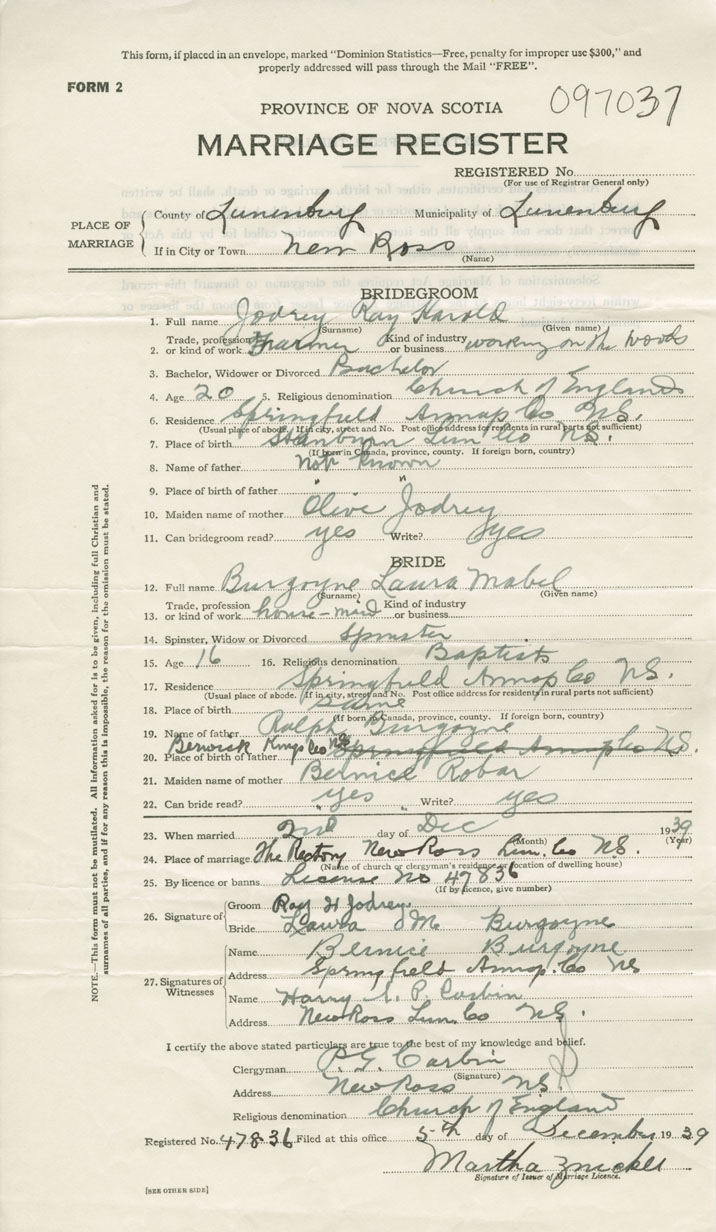 This form, if placed in an envelope, marked "Dominion Statistics—Free, penalty for improper use $300," and
properly addressed will pass through the Mail "FREE".
FORM 2
097037
PROVINCE OF NOVA SCOTIA
MARRIAGE REGISTER
REGISTERED No.
(For use of Registrar General only)
PLACE OF MARRIAGE
County of Lunenburg Municipality of Lunenburg
If in City or Town New Ross
(Name)
BRIDEGROOM
1. Full name Jodrey Ray Harold
(Surname) (Given name)
2. Trade, profession or kind of work Farmer Kind of industry or business working on the woods
3. Bachelor, Widower or Divorced Bachelor
4. Age 20 5. Religious denomination Church of England
6. Residence Springfield Annap. Co N.S.
(Usual place of abode. If in city, street and No. Post office address for residents in rural parts not sufficient)
7. Place of birth Stanburn Lun. Co N.S.
(If born in Canada, province, county. If foreign born, country)
8. Name of father not known
9. Place of birth of father " "
10. Maiden name of mother Olive Jodrey
11. Can bridegroom read? yes Write? yes
BRIDE
12. Full name Burgoyne Laura Mabel
(Surname) (Given name)
13. Trade, profession or kind of work house-maid Kind of industry or business
14. Spinster, Widow or Divorced Spinster
15. Age 16 16. Religious denomination Baptist
17. Residence Springfield Annap Co N.S.
(Usual place of abode. If in city, street and No. Post office address for residents in rural parts not sufficient)
18. Place of birth Same
(If born in Canada, province, county. If foreign born, country)
19. Name of father Ralph Burgoyne
20. Place of birth of father Berwick Kings Co NS Springfield Annap Co N.S.
21. Maiden name of mother Bernice Robar
22. Can bride read? yes Write? yes
23. When married 2nd day of Dec 1939
(Month) (Year)
24. Place of marriage The Rectory New Ross Lun. Co N.S.
(Name of church or clergyman's residence or location of dwelling house)
25. By licence or banns License No 47836
(If by licence, give number)
26. Signature of
Groom Ray H Jodrey
Bride Laura M. Burgoyne
27. Signatures of Witnesses
Name Bernice Burgoyne
Address Springfield Annap. Co NS
Name Harry P. Corbin
Address New Ross Lun. Co N.S.
I certify the above stated particulars are true to the best of my knowledge and belief.
Clergyman P.G. Corbin
(Signature)
Address New Ross N.S.
Religious denomination Church of England
Registered No. 47836 Filed at this office 5th day of December 1939
Martha
Signature of Issuer of Marriage Licence.
[SEE OTHER SIDE]
NOTE.—This form must not be mutilated. All information asked for is to be given, including full Christian and
surnames of all parties, and if for any reason this is impossible, the reason for the omission must be stated.